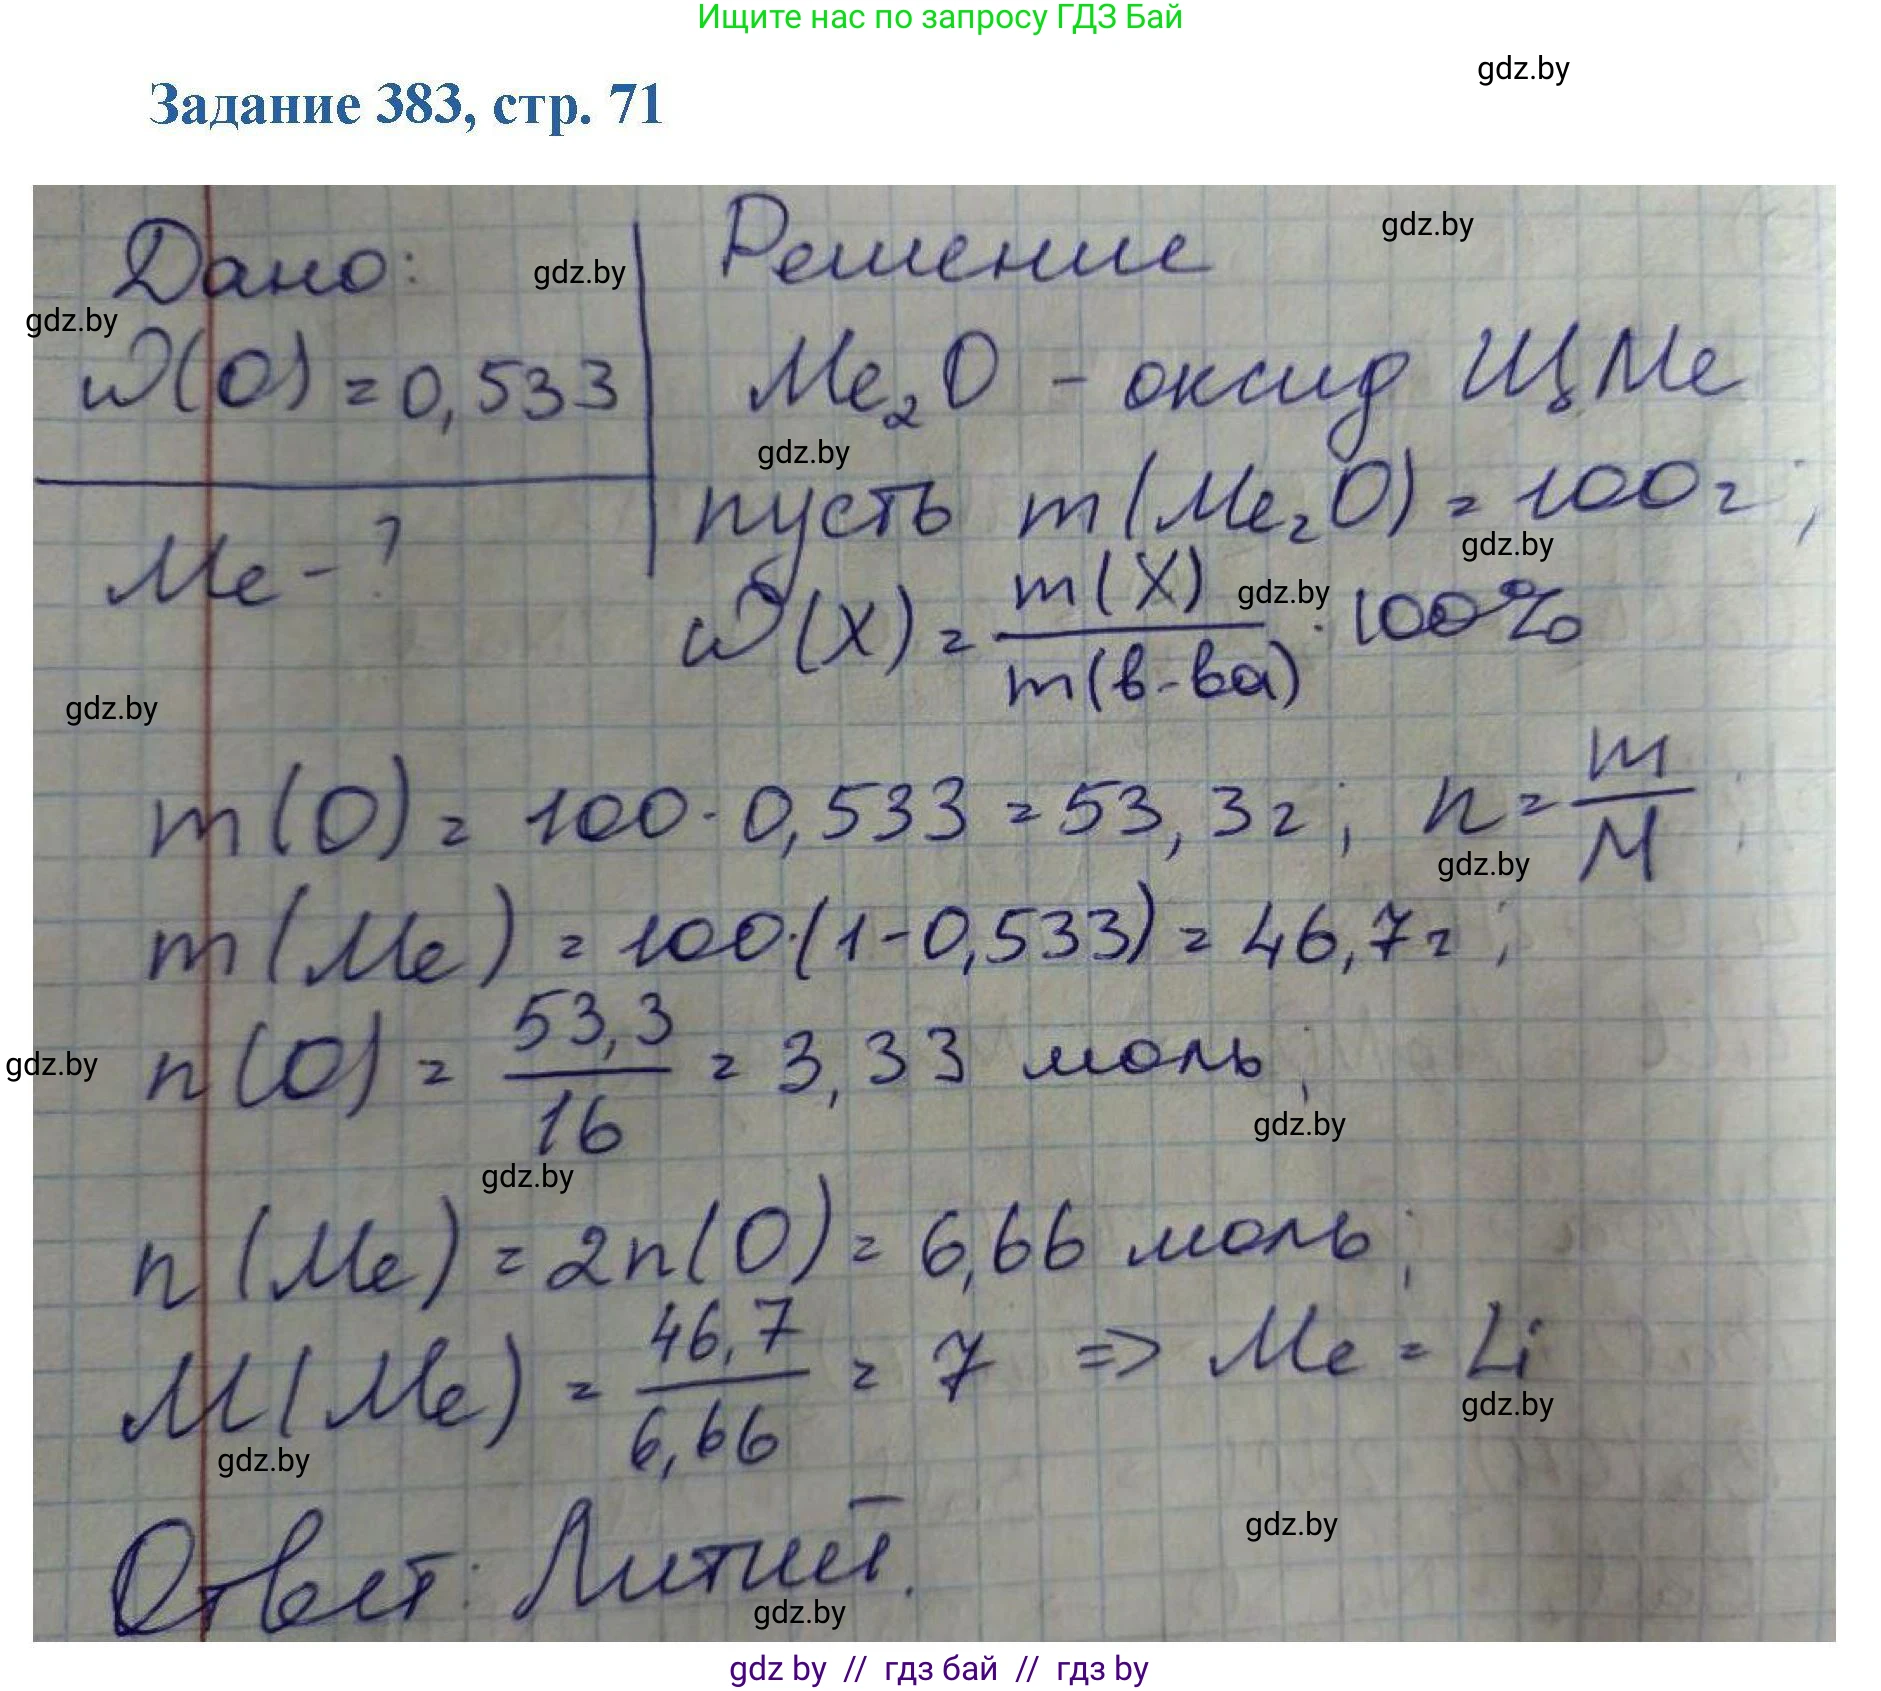 Ищите нас по запросу ГДЗ Бай
gdz.by
Задание 383, стр. 71
Дано:
gdz.by
Решение
gdz.by
gdz.by
ω(O) = 0,533
Me₂O - оксид ЩМе
gdz.by
пусть m(Me₂O) = 100г;
gdz.by
Me - ?
ω(X) = m(X) / m(в-ва) · 100%
gdz.by
gdz.by
m(O) = 100 · 0,533 = 53,3г; n = m / M;
gdz.by
m(Me) = 100·(1-0,533) = 46,7г;
n(O) = 53,3 / 16 = 3,33 моль;
gdz.by
gdz.by
gdz.by
n(Me) = 2n(O) = 6,66 моль;
M(Me) = 46,7 / 6,66 = 7 => Me = Li
gdz.by
gdz.by
gdz.by
Ответ: Литий.
gdz.by
gdz by // гдз бай // гдз by